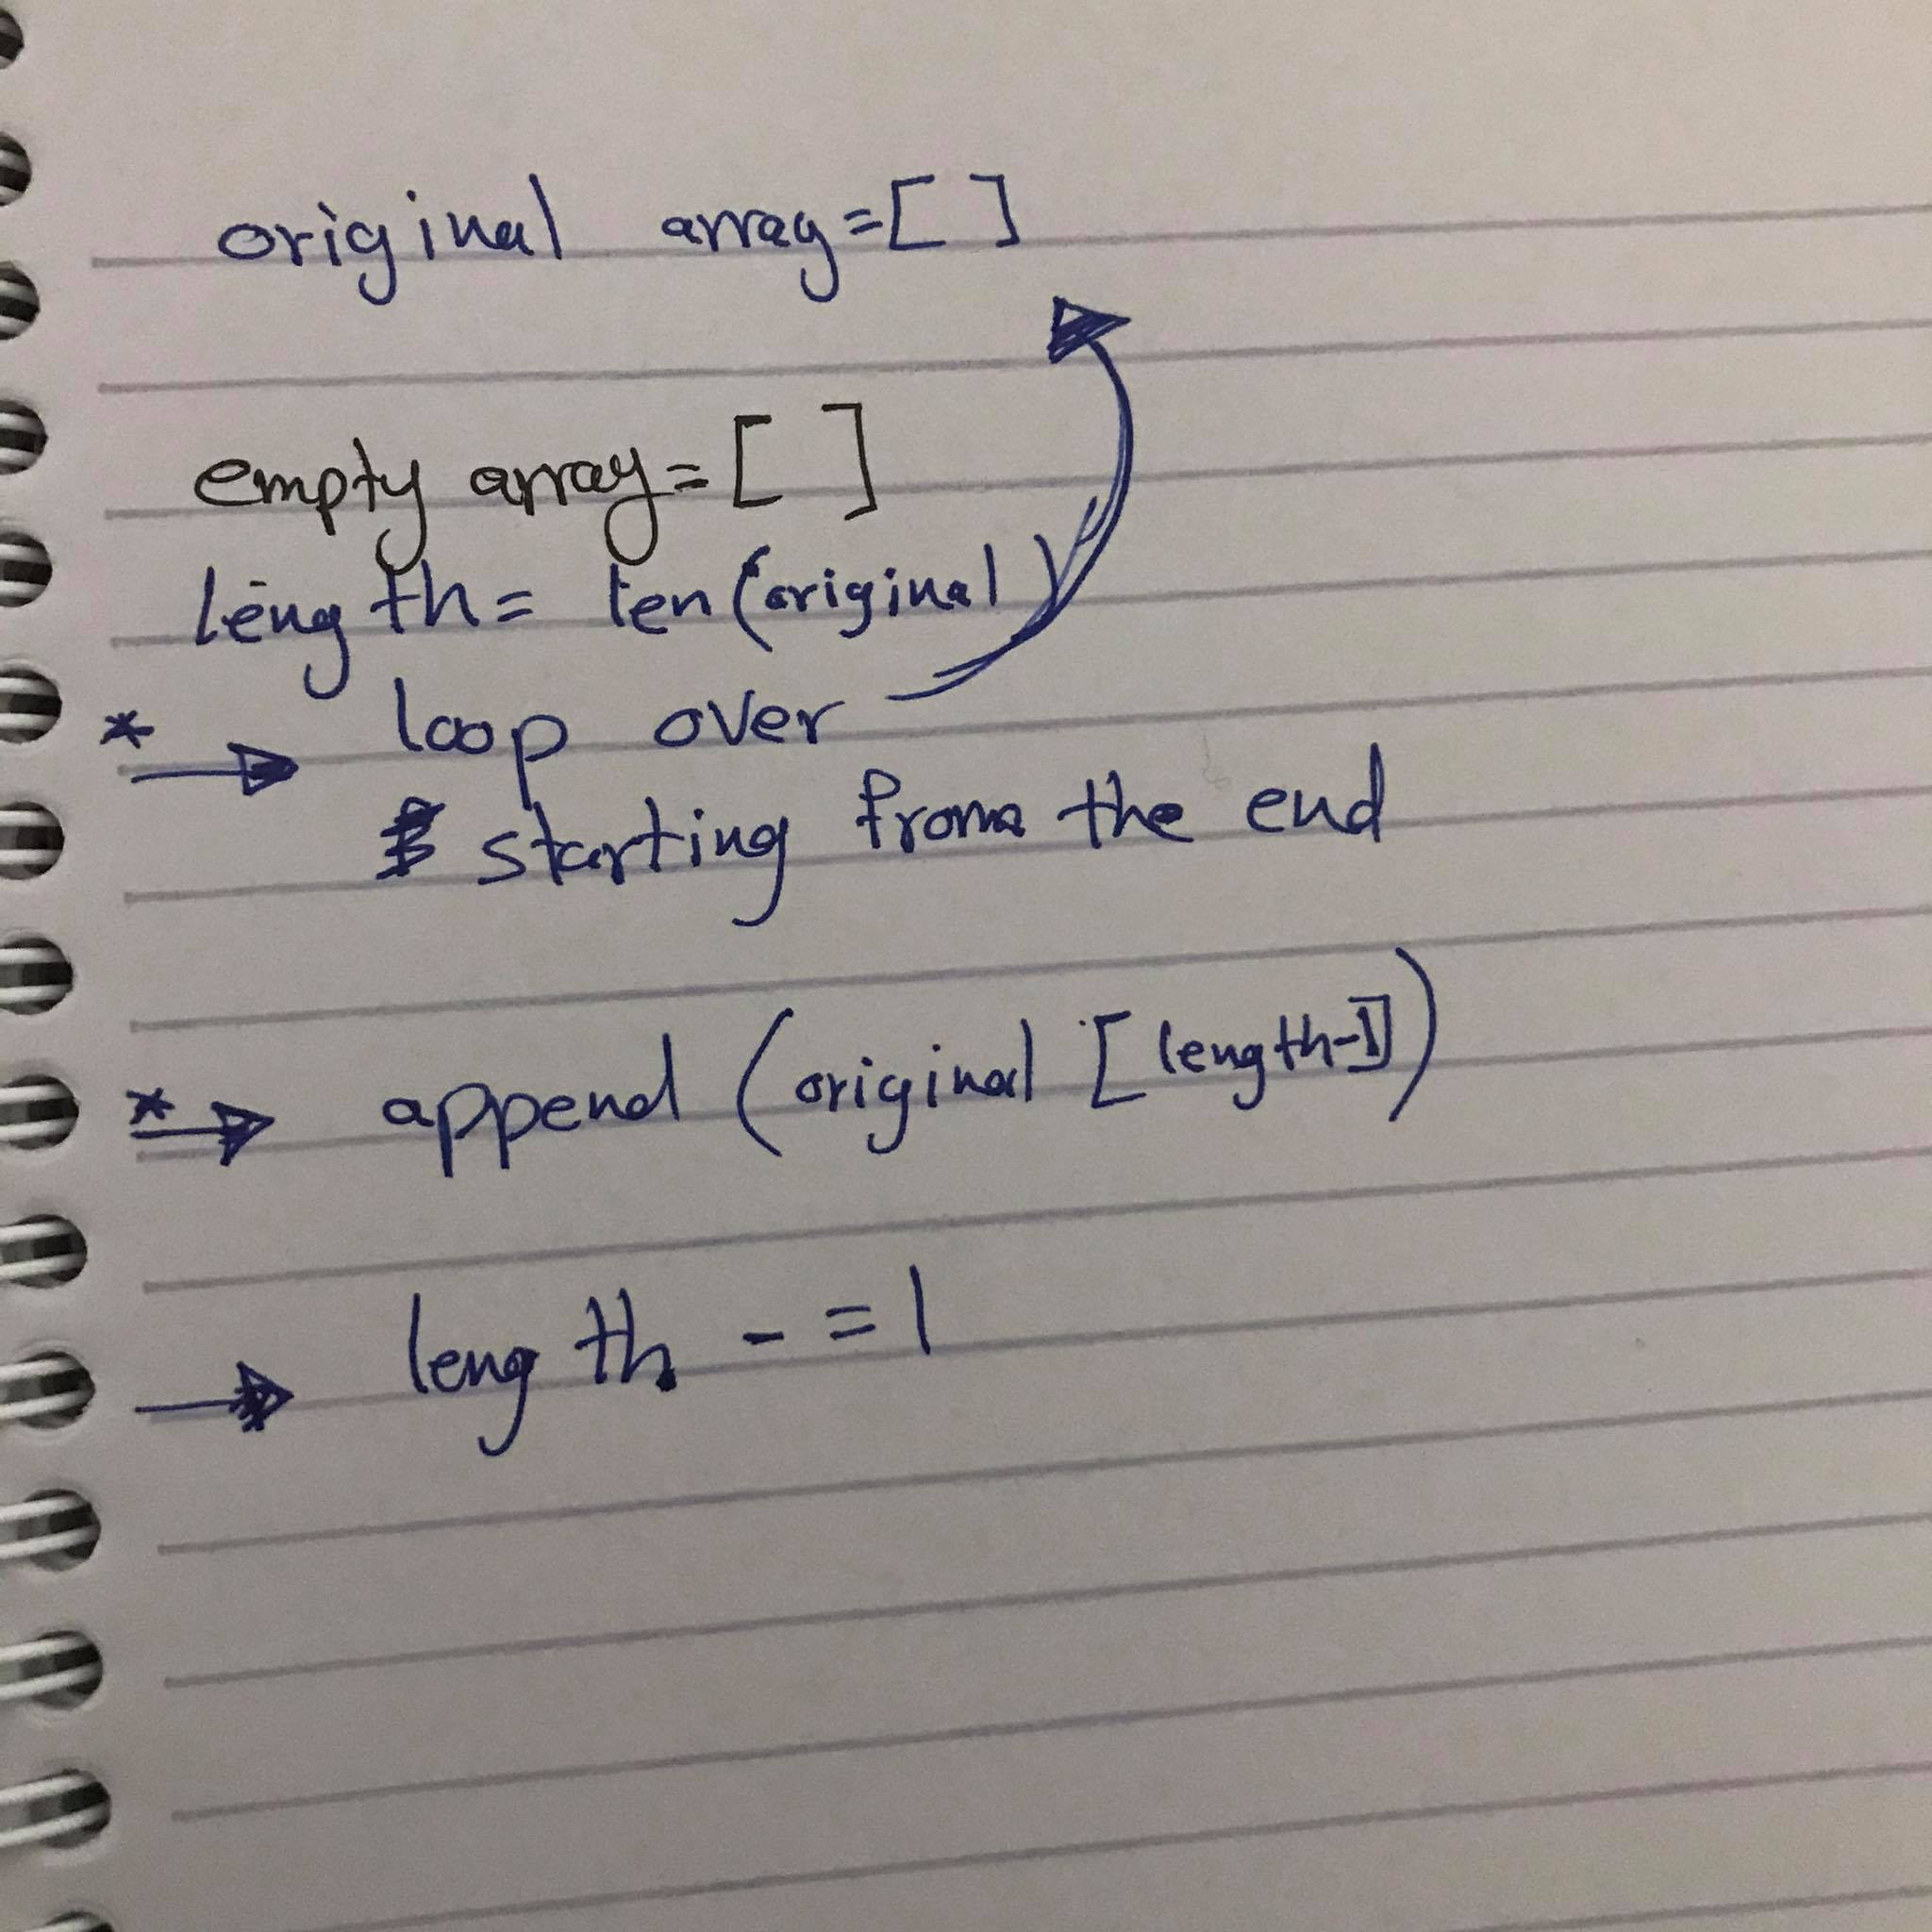 original array=[ ]
empty array=[ ]
length= len(original)
* loop over
starting from the end
* append (original [length-1])
length -=1